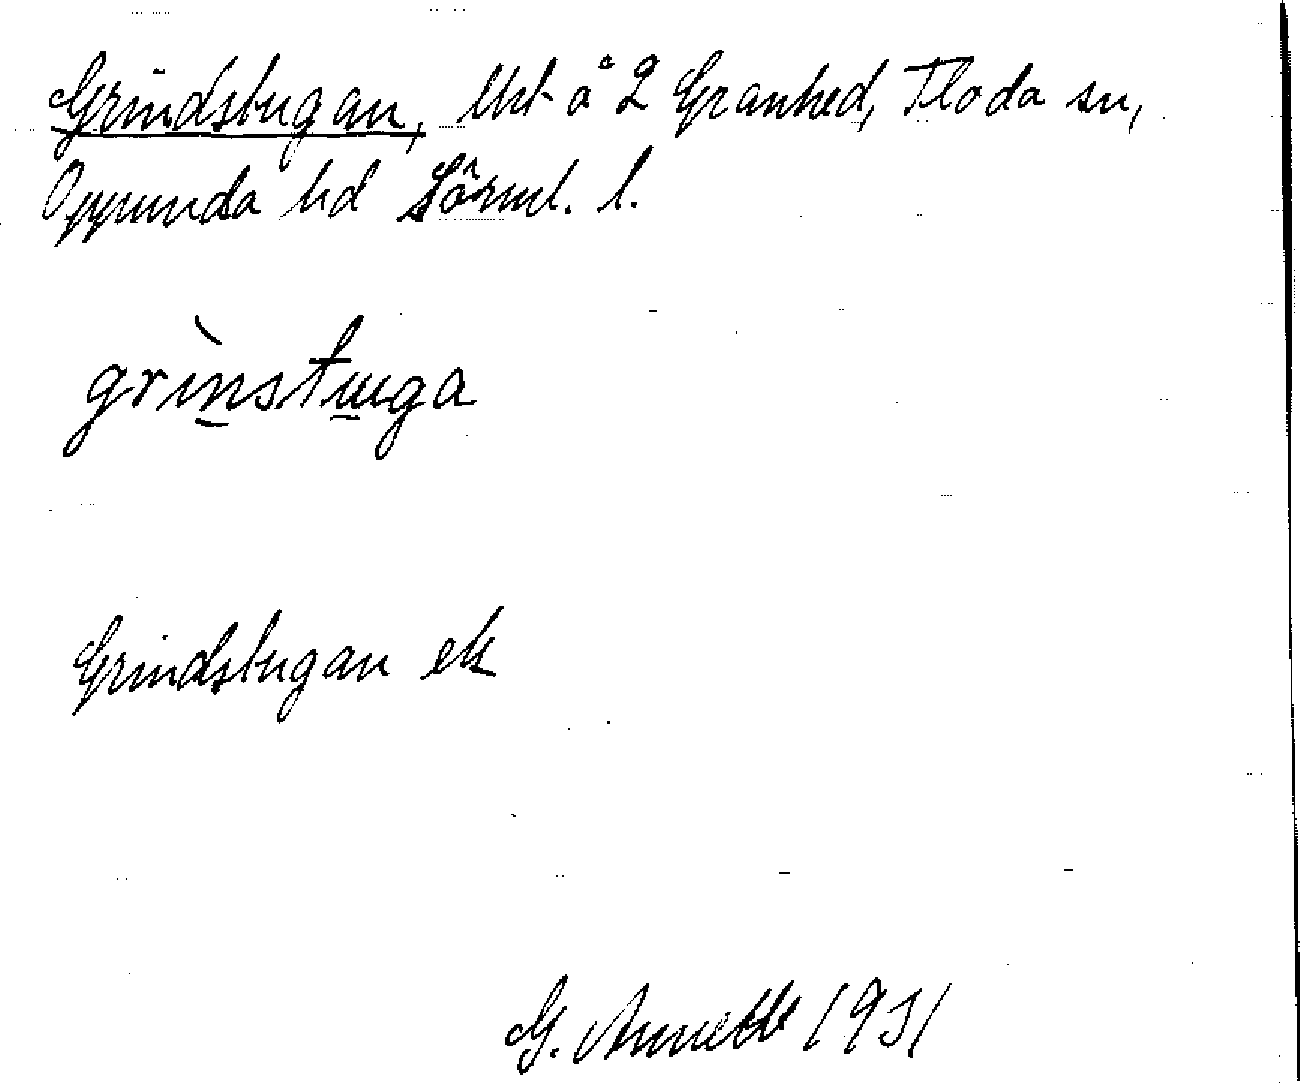 Grindstugan, Uht å 2 Granhed, Floda sn,
Oppunda hd Sörml. l.
grìnstuga
Grindstugan ek
G. 1931